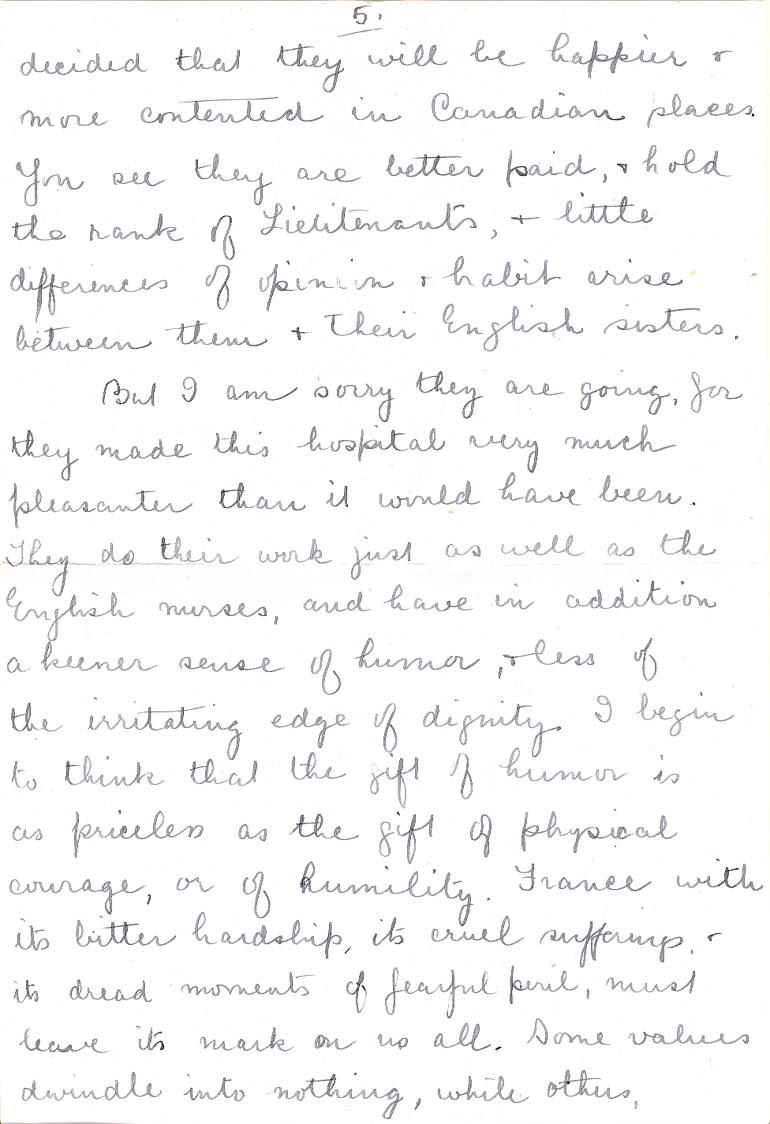 5.
decided that they will be happier &
more contented in Canadian places.
You see they are better paid, & hold
the rank of Lieutenants, & little
differences of opinion & habit arise
between them & their English sisters.
But I am sorry they are going, for
they made this hospital very much
pleasanter than it would have been.
They do their work just as well as the
English nurses, and have in addition
a keener sense of humor, & less of
the irritating edge of dignity. I begin
to think that the gift of humor is
as priceless as the gift of physical
courage, or of humility. France with
its bitter hardship, its cruel suffering, &
its dread moments of fearful peril, must
leave its mark on us all. Some values
dwindle into nothing, while others,